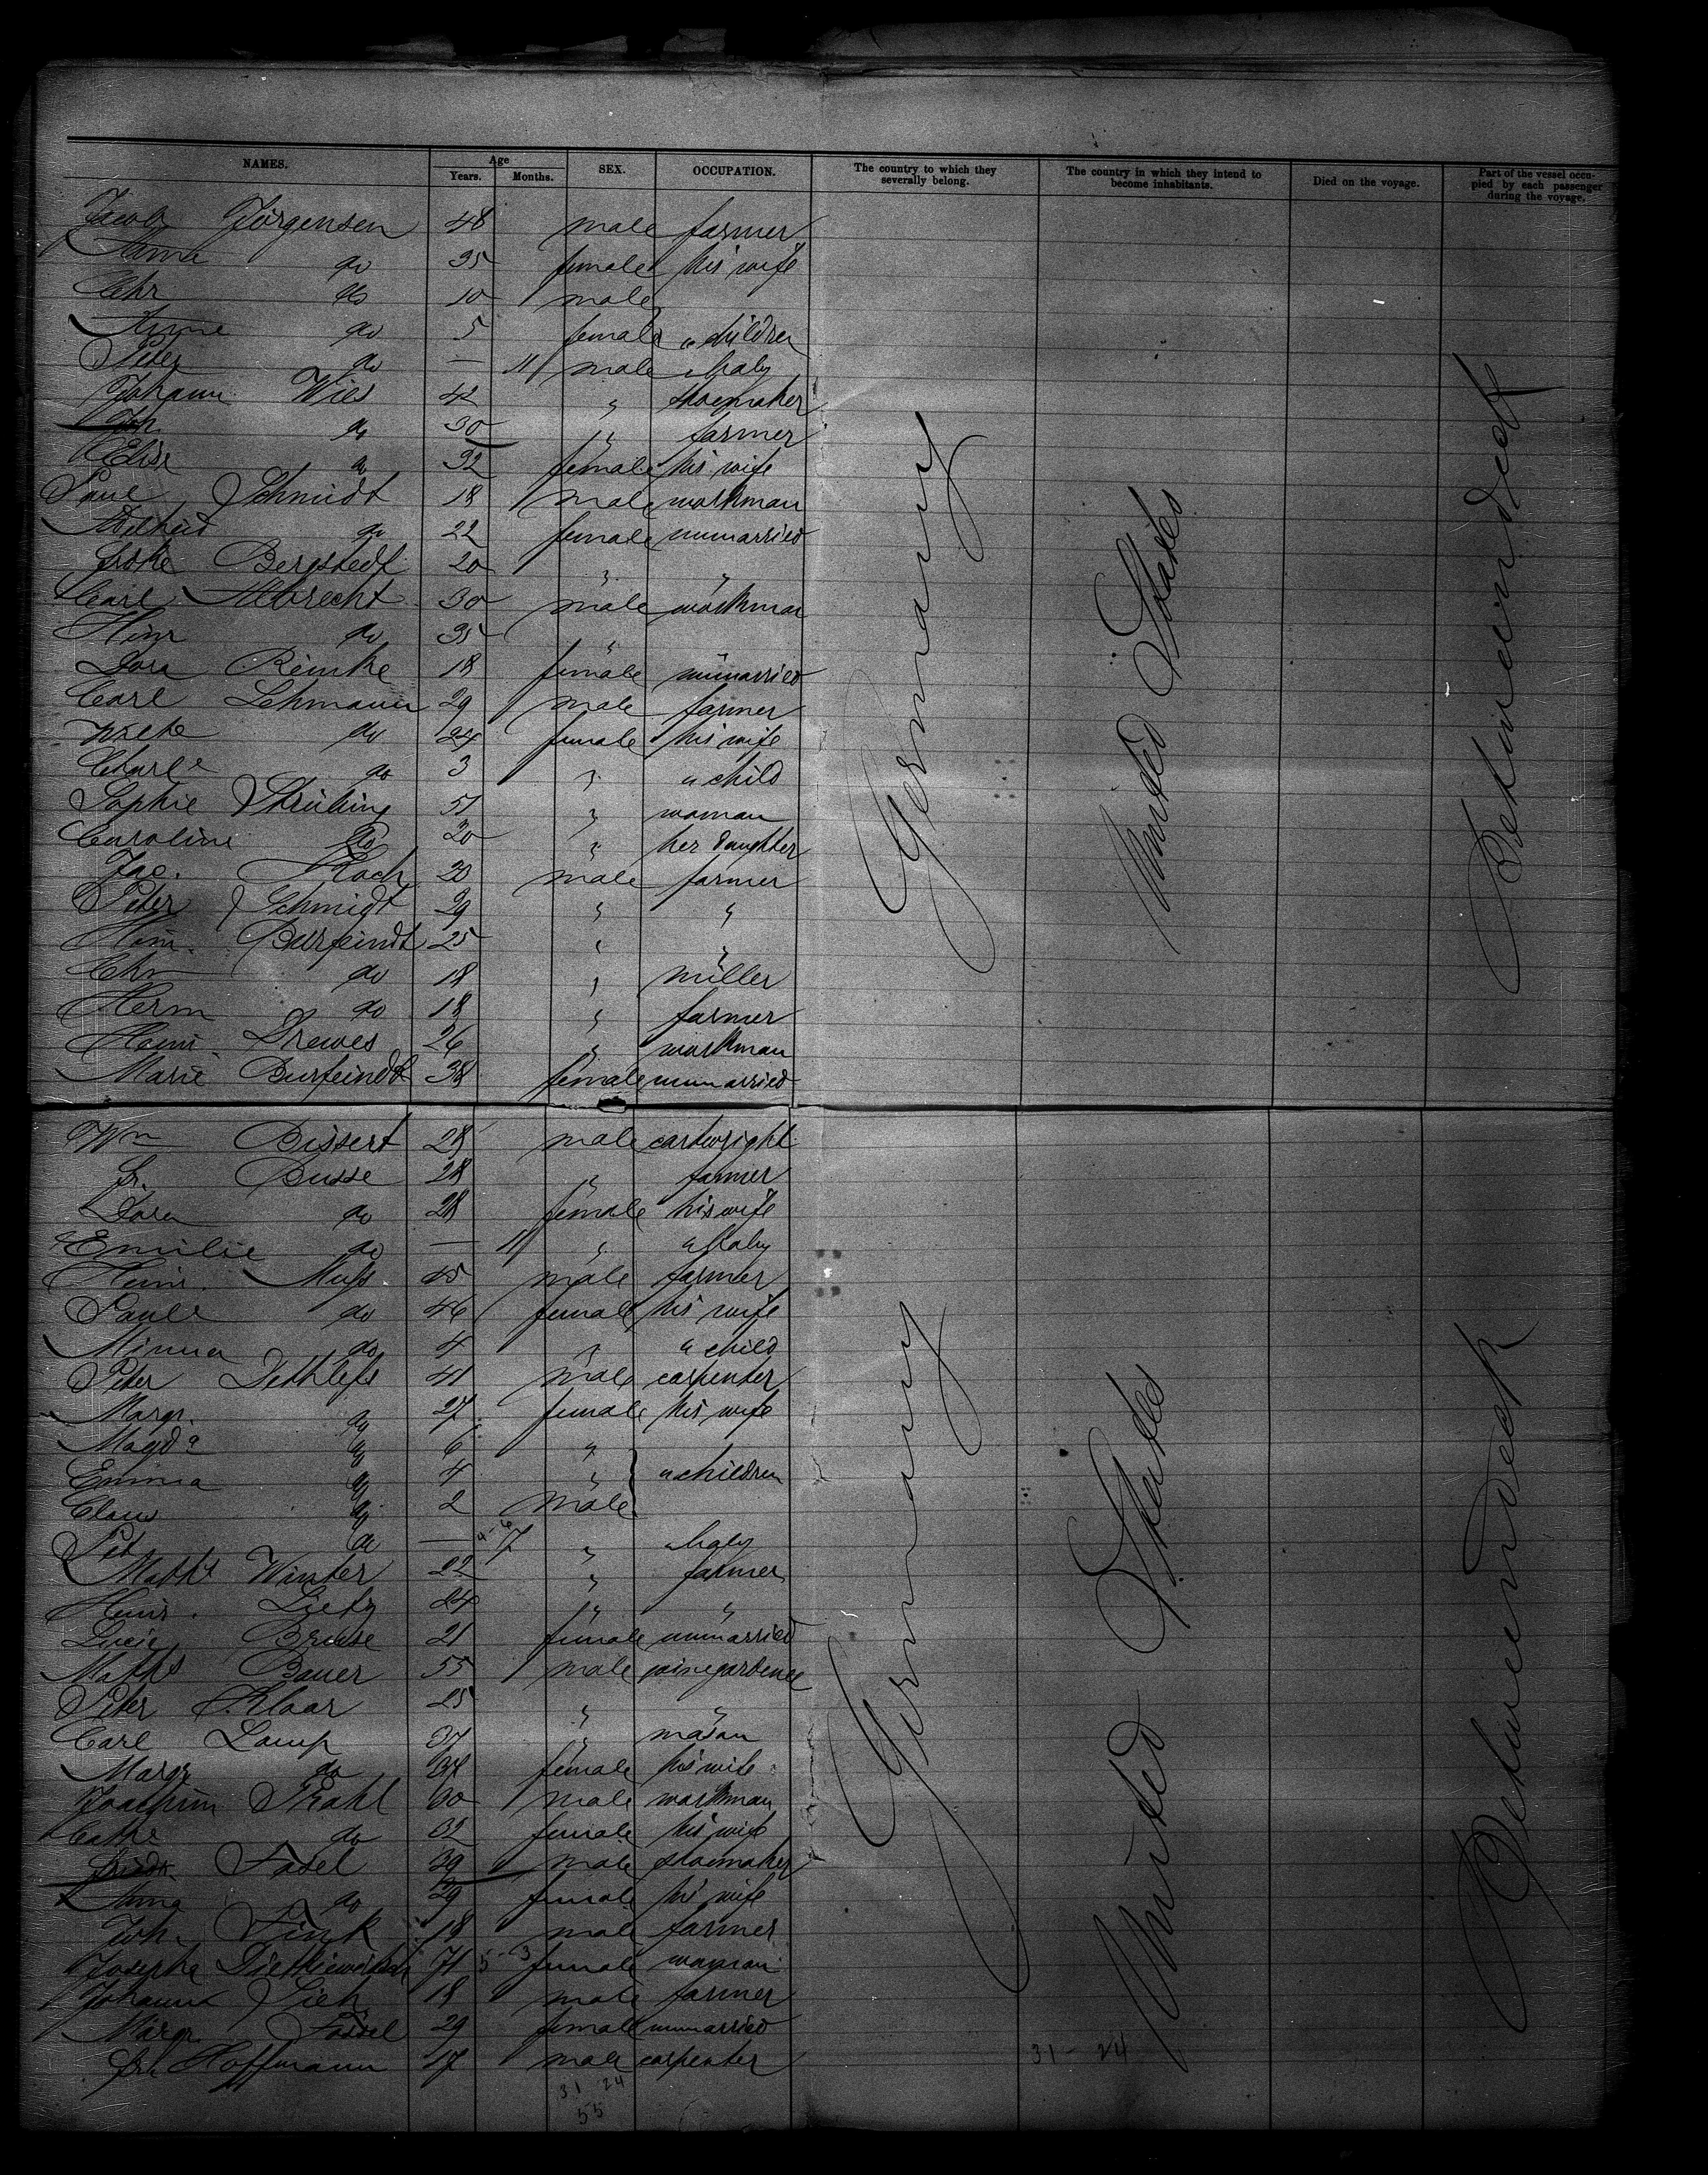 NAMES. Age Years. Months. SEX. OCCUPATION. The country to which they severally belong. The country in which they intend to become inhabitants. Died on the voyage. Part of the vessel occupied by each passenger during the voyage.
Jacob Jörgensen 48 male farmer
Anna do 35 female his wife
Chr do 10 male
Anne do 5 female " children
Peter do — 11 male " baby
Johann Wies 42 " shoemaker
Joh. do 30 " farmer
Elise do 32 female his wife
Paul Schmidt 18 male workman
Adelheid do 22 female unmarried
Bergstedt 20 " "
Carl Albrecht 30 male workman
Hinr do 35 " "
Dora Reimke 18 female unmarried
Carl Lehmann 29 male farmer
Wiebe do 24 female his wife
Charle do 3 " " child
Sophie Strüking 51 " woman
Caroline do 20 " her daughter
Jac. Koch 20 male farmer
Peter Schmidt 29 " "
Heinr. Burfeindt 25 " "
Chr do 18 " miller
Herm do 18 " farmer
Heinr Drewes 26 " workman
Marie Burfeindt 38 female unmarried
Wm Bissert 28 male cartwright
Fr. Busse 28 " farmer
Dora do 28 female his wife
Emilie do — 11 " " baby
Heinr. Muhs 45 male farmer
Paule do 46 female his wife
Minna do 4 " " child
Peter Dethlefs 41 male carpenter
Margr. do 27 female his wife
Magda do 6 "
Emma do 4 " " children
Claus do 2 male
Pet do — 7 " " baby
Maths Winter 22 " farmer
Heinr. Lietz 24 " "
Lucie Bruse 21 female unmarried
Maths Bauer 55 male
Peter Klaar 25 " "
Carl Lamp 37 " mason
Margr do 38 female his wife
Joachim Prahl 60 male workman
Cathe do 62 female his wife
Friedr. Fasel 39 male shoemaker
Anna do 29 female his wife
Joh. Fink 18 male farmer
Josepha 71 5-3 female woman
Johann Sieh 18 male farmer
Margr. Fassel 29 female unmarried
Frh. Hoffmann 17 male carpenter
31 24
55
31-24
Germany
United States
Betweendeck
Germany
United States
Betweendeck